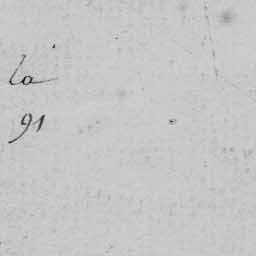 la
91